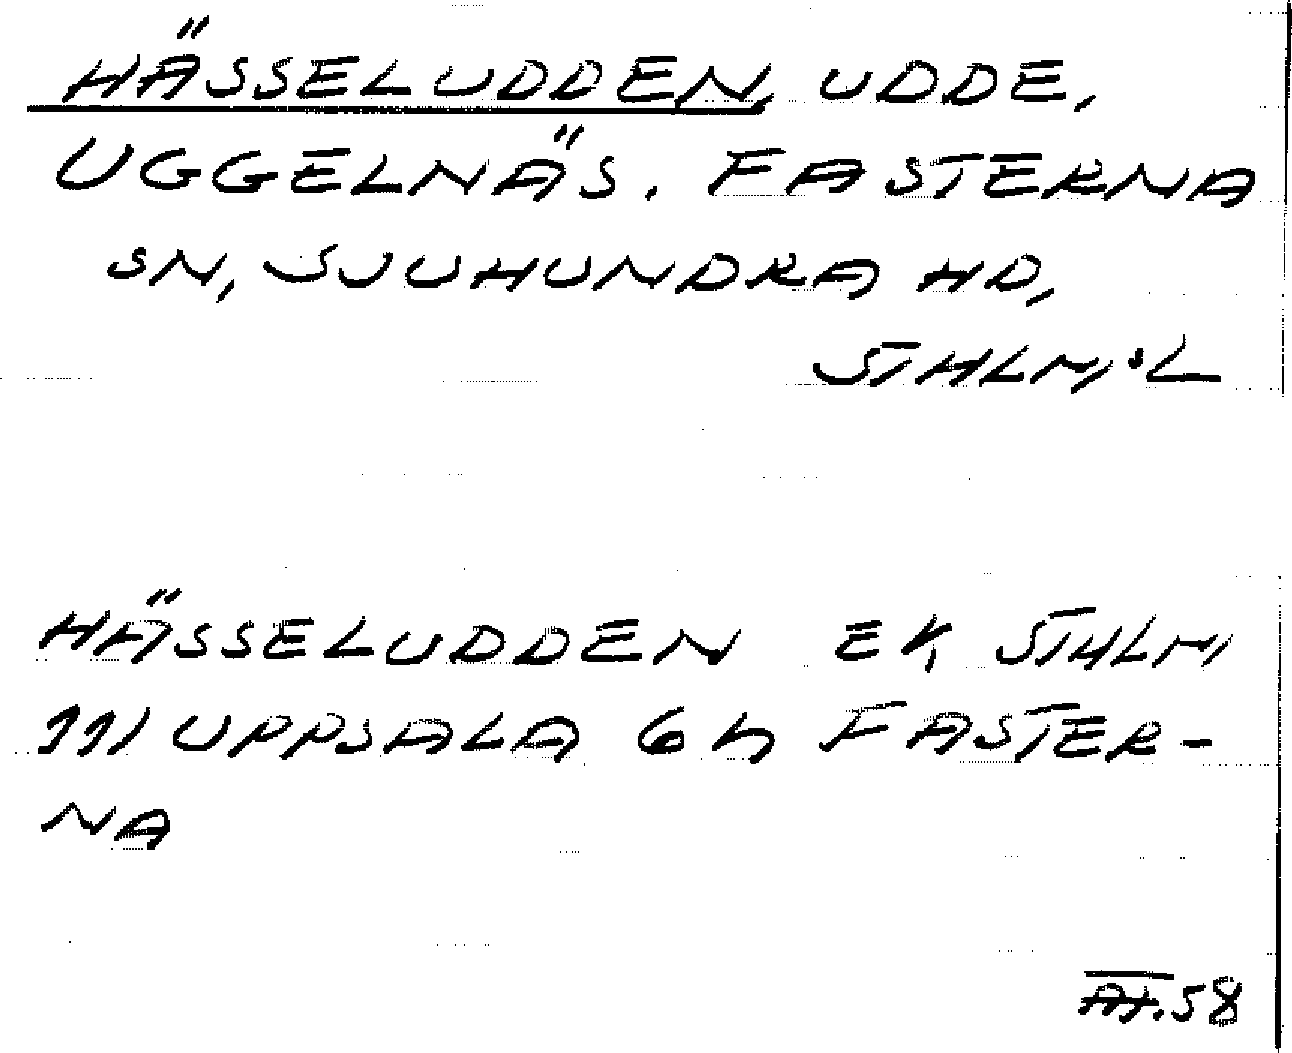 HÄSSELUDDEN, UDDE,
UGGELNÄS. FASTERNA
SN, SJUHUNDRA HD,
STHLM,S L
HÄSSELUDDEN EK STHLM
111 UPPSALA 6h FASTER-
NA
58